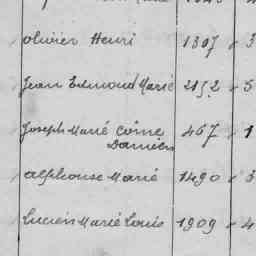 olivier Henri 1307 3
Jean Edmond Marié 2152 5
Joseph Marié Côme 457 1
Damien
alphonse Marié 1490 3
Lucien Marié Louis 1909 4